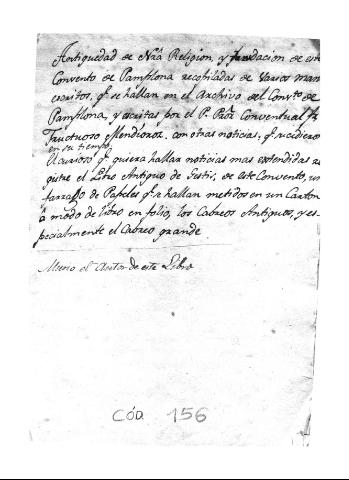 Antiguedad de Nrã Religion, y fundacion de este
Convento de Pamplona recopiladas de varios man
escritos, q̃ se hallan en el Archivo del Convto de
Pamplona, y escritas por el P. Pror Conventual fr
Fructuoso Mendioroz, con otras noticias, q̃
en su tiempo,
El curioso q̃ quiera hallar noticias mas estendidas re
gistre el Libro Antiguo de Gestis, de este Convento, un
de Papeles q̃ se hallan metidos en un Carton
à modo de libro en folio, los Cabreos Antiguos, y es-
pecialmente el Cabreo grande
Murio el Autor de este Libro
CÓD. 156